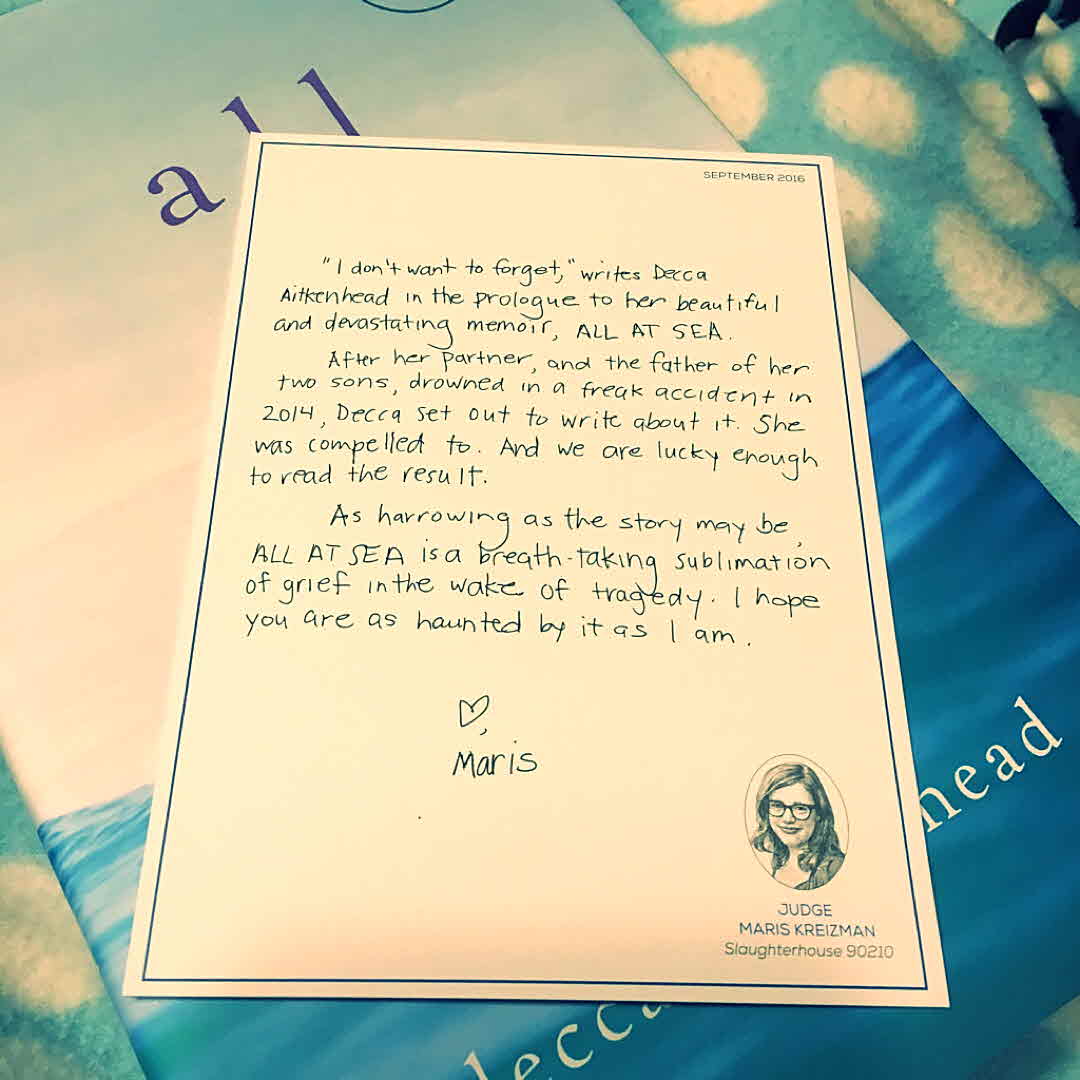 all
SEPTEMBER 2016
"I don't want to forget," writes Decca
Aitkenhead in the prologue to her beautiful
and devastating memoir, ALL AT SEA.
After her partner, and the father of her
two sons, drowned in a freak accident in
2014, Decca set out to write about it. She
was compelled to. And we are lucky enough
to read the result.
As harrowing as the story may be,
ALL AT SEA is a breath-taking sublimation
of grief in the wake of tragedy. I hope
you are as haunted by it as I am.
♡,
Maris
JUDGE
MARIS KREIZMAN
Slaughterhouse 90210
decca
head